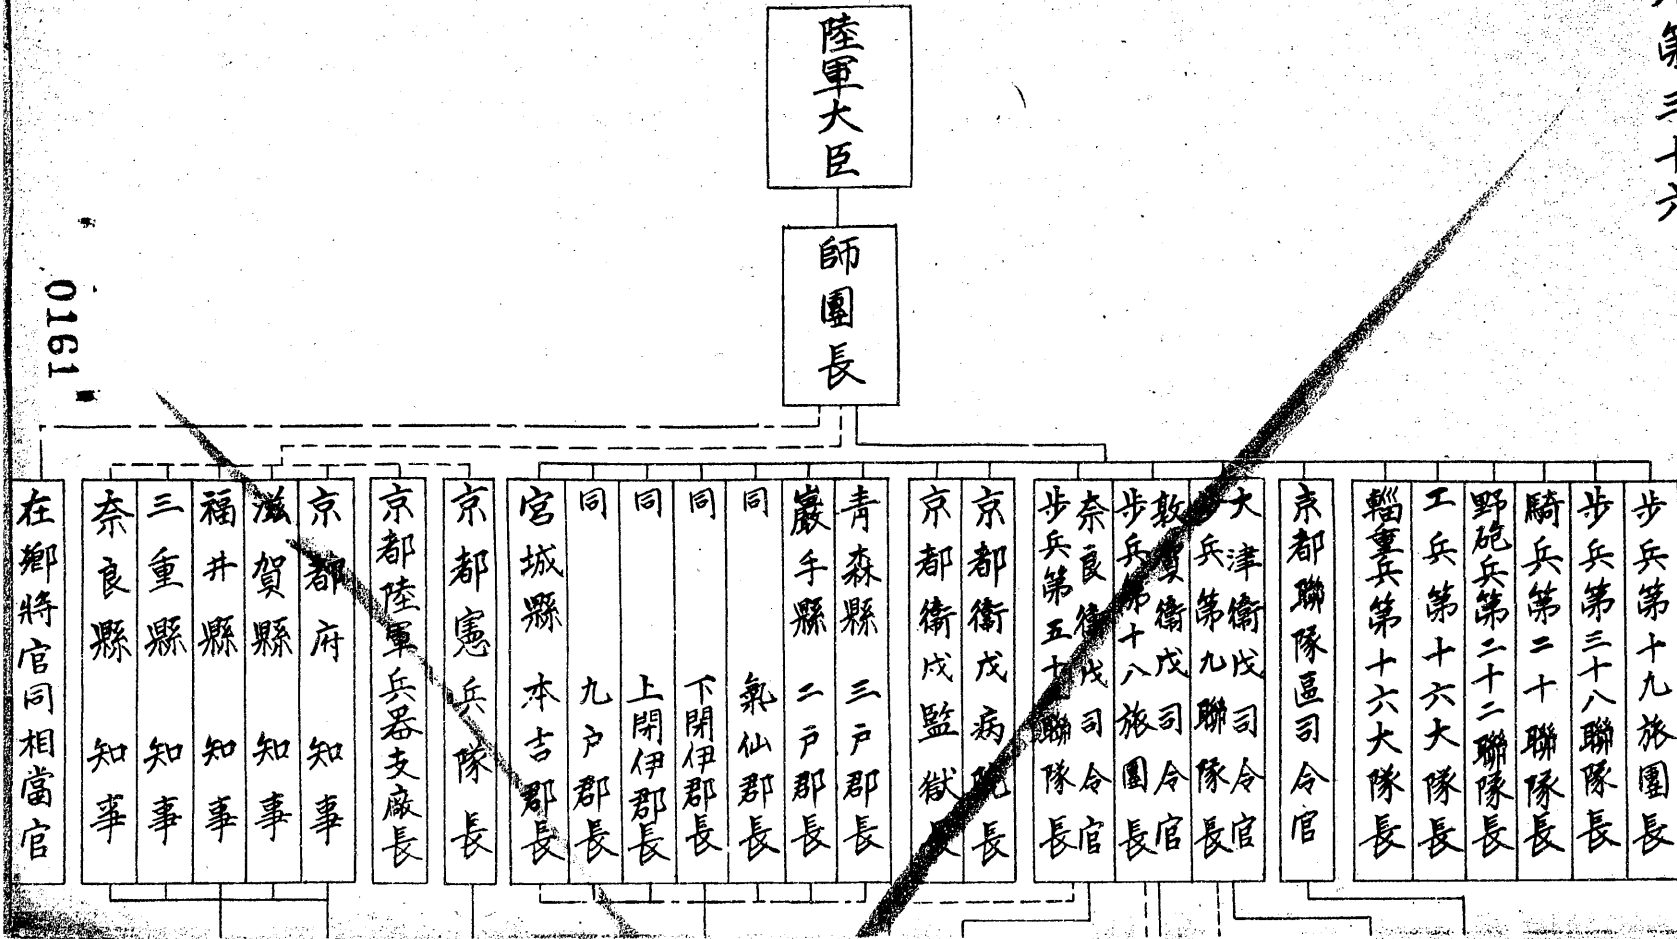 第三十六
陸軍大臣
師團長
步兵第十九旅團長
步兵第三十八聯隊長
騎兵第二十聯隊長
野砲兵第二十二聯隊長
工兵第十六大隊長
輜重兵第十六大隊長
京都聯隊區司令官
大津衞戍司令官
兵第九聯隊長
敦賀衞戍司令官
步兵第十八旅團長
奈良衞戍司令官
步兵第五十聯隊長
京都衞戍病院長
京都衞戍監獄長
青森縣 三戸郡長
巖手縣 二戸郡長
同 氣仙郡長
同 下閉伊郡長
同 上閉伊郡長
同 九戸郡長
宮城縣 本吉郡長
京都憲兵隊長
京都陸軍兵器支廠長
京都府知事
滋賀縣知事
福井縣知事
三重縣知事
奈良縣知事
在鄉將官同相當官
0161